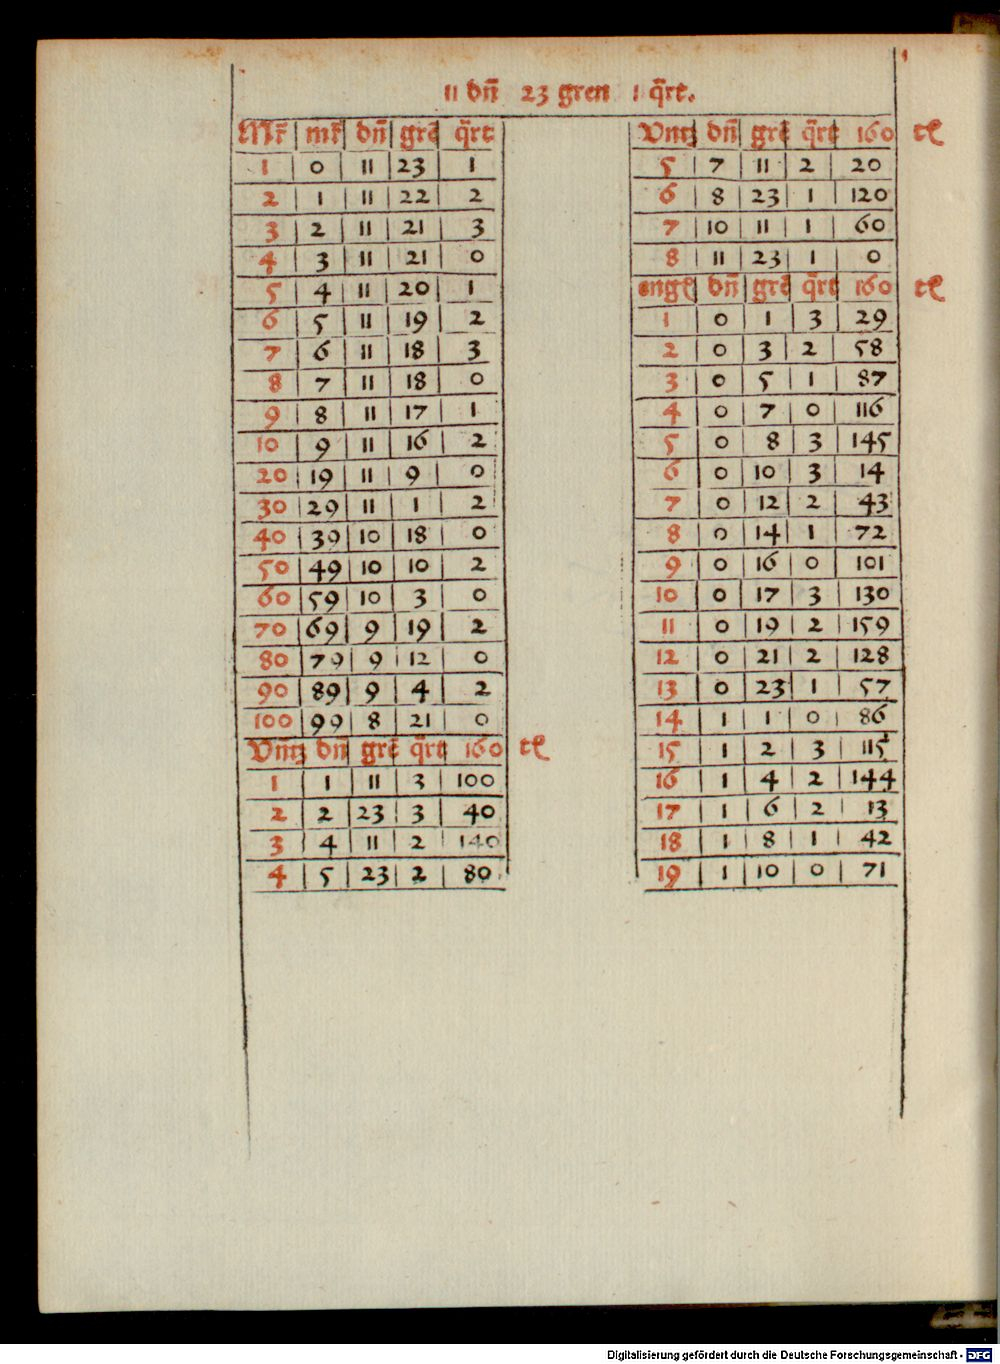 11 dn̄ 23 gren 1 q̄rt.
Mr̄ mr̄ dn̄ grē q̄rt
1 0 11 23 1
2 1 11 22 2
3 2 11 21 3
4 3 11 21 0
5 4 11 20 1
6 5 11 19 2
7 6 11 18 3
8 7 11 18 0
9 8 11 17 1
10 9 11 16 2
20 19 11 9 0
30 29 11 1 2
40 39 10 18 0
50 49 10 10 2
60 59 10 3 0
70 69 9 19 2
80 79 9 12 0
90 89 9 4 2
100 99 8 21 0
Vntz dn̄ grē q̄rt 160 tl
1 1 11 3 100
2 2 23 3 40
3 4 11 2 140
4 5 23 2 80
Vntz dn̄ grē q̄rt 160 tl
5 7 11 2 20
6 8 23 1 120
7 10 11 1 60
8 11 23 1 0
engl dn̄ grē q̄rt 160 tl
1 0 1 3 29
2 0 3 2 58
3 0 5 1 87
4 0 7 0 116
5 0 8 3 145
6 0 10 3 14
7 0 12 2 43
8 0 14 1 72
9 0 16 0 101
10 0 17 3 130
11 0 19 2 159
12 0 21 2 128
13 0 23 1 57
14 1 1 0 86
15 1 2 3 115
16 1 4 2 144
17 1 6 2 13
18 1 8 1 42
19 1 10 0 71
Digitalisierung gefördert durch die Deutsche Forschungsgemeinschaft - DFG